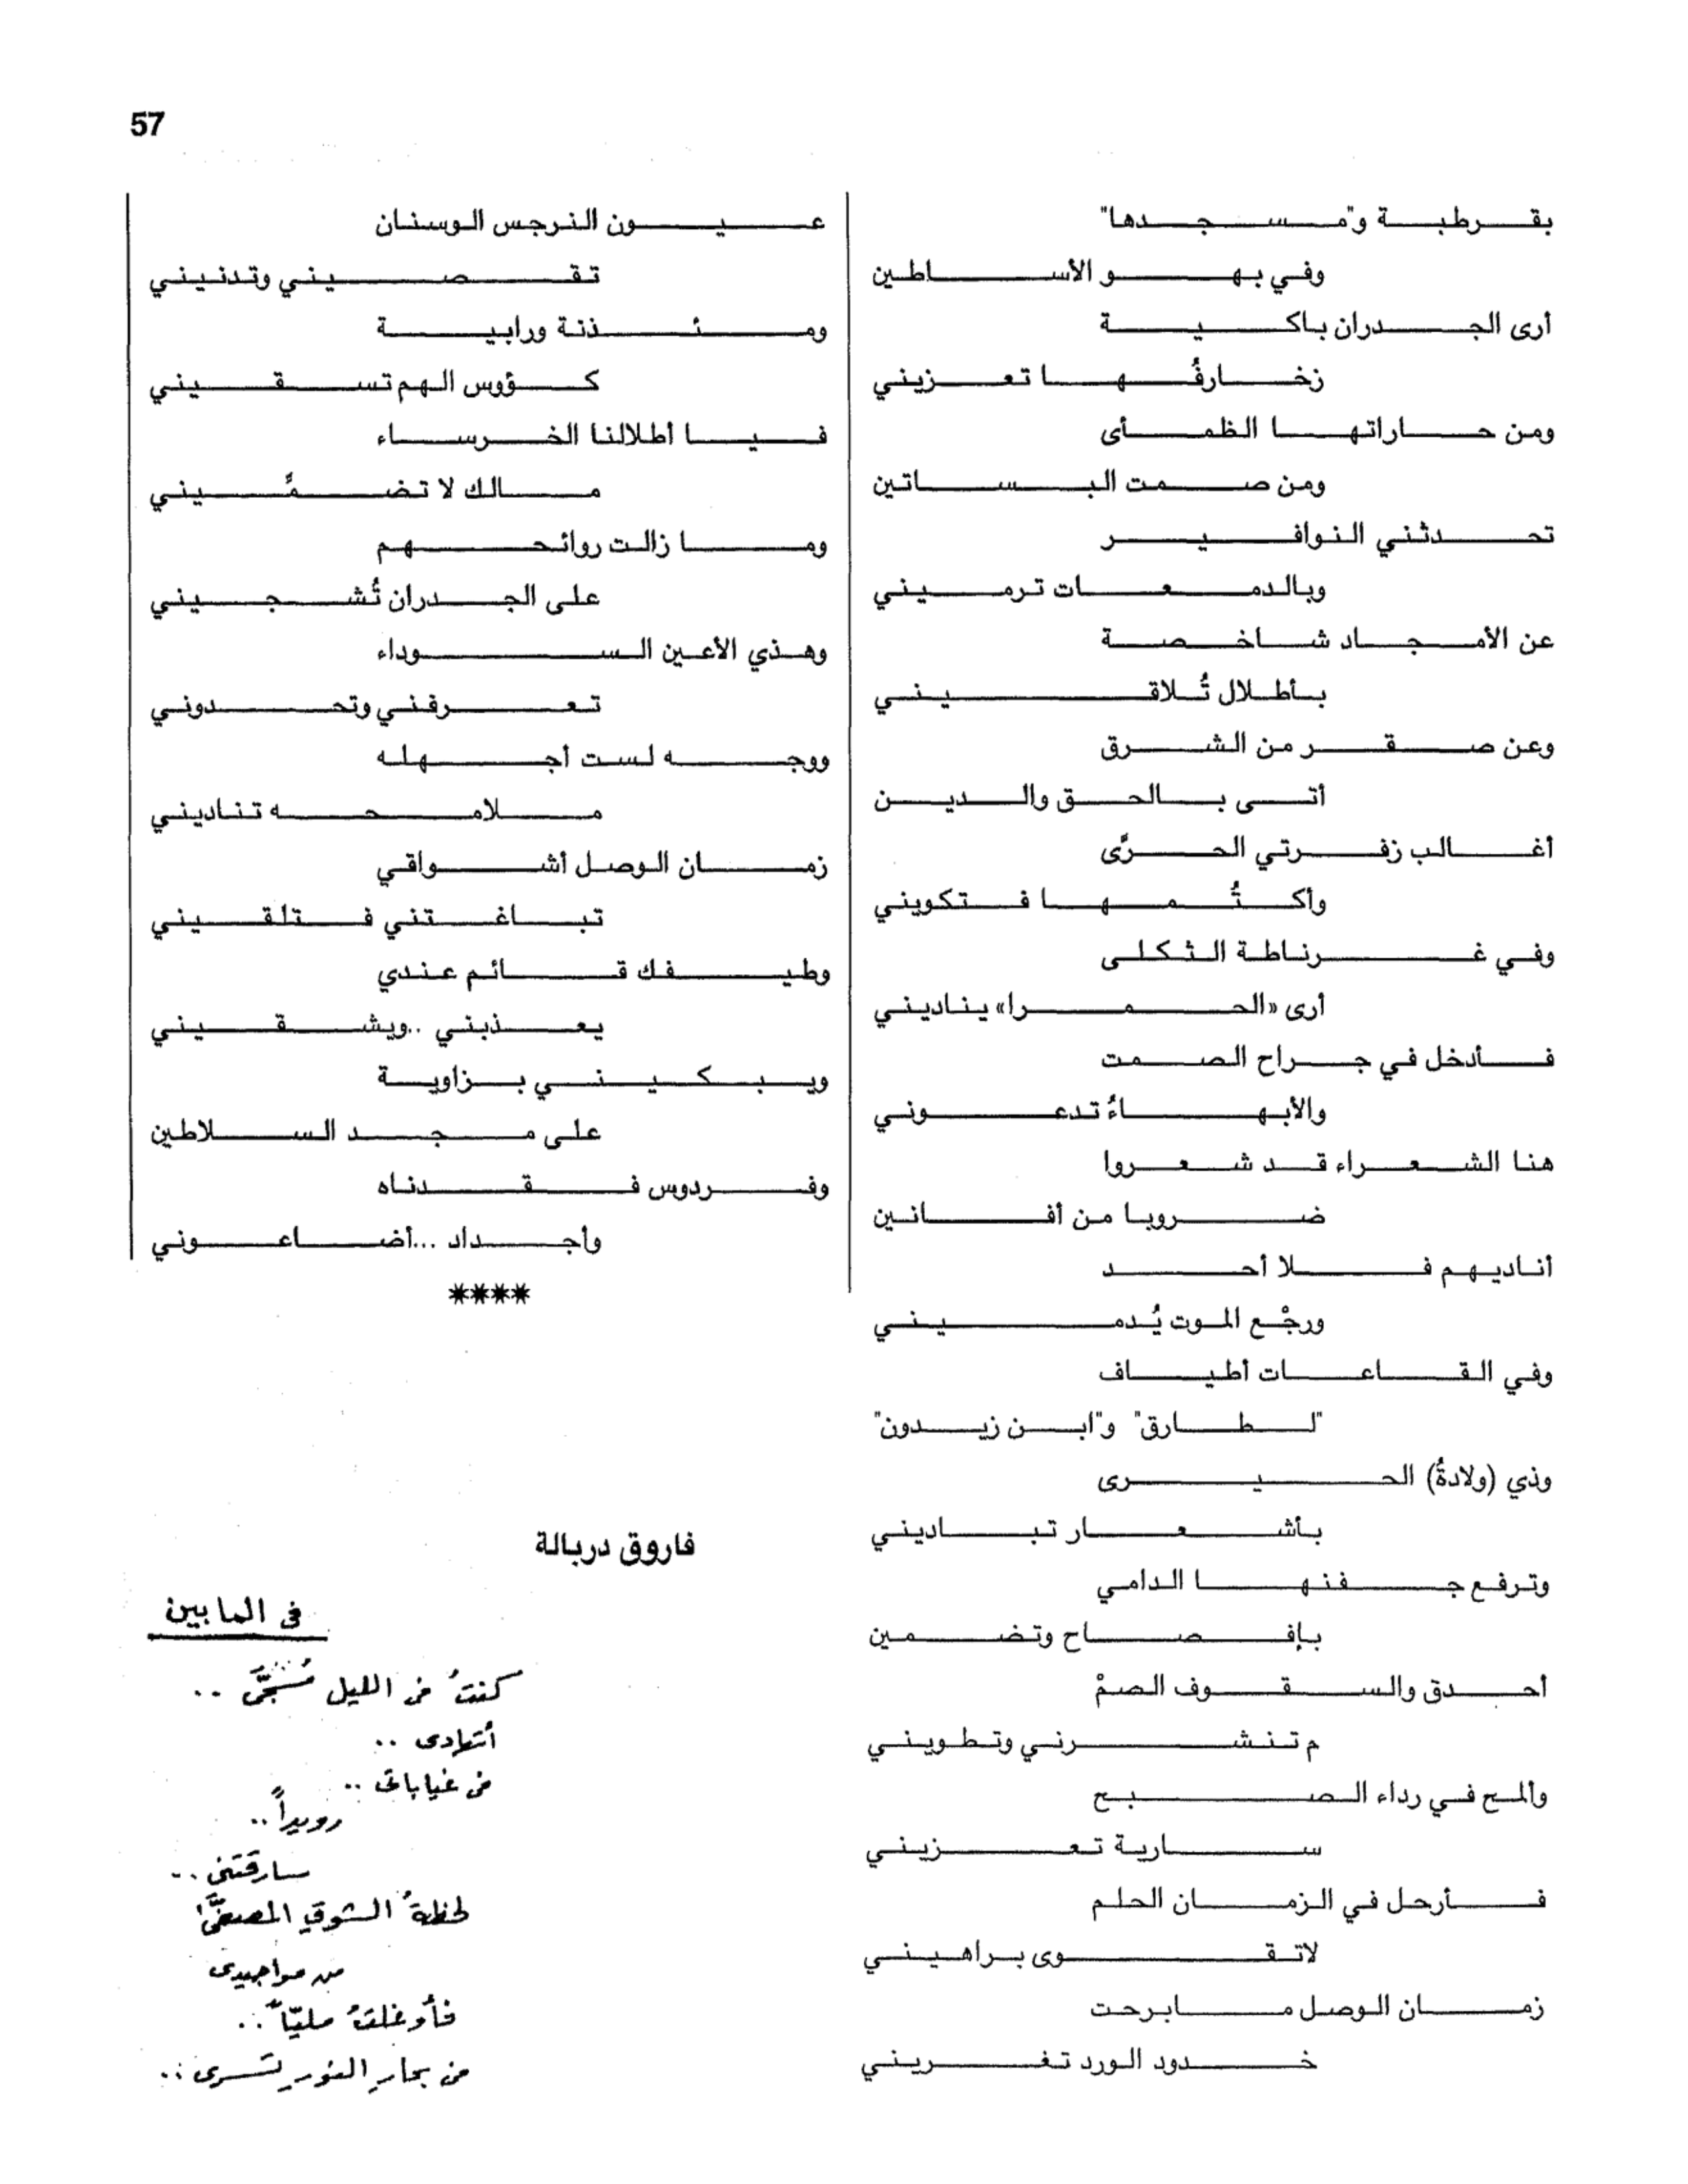 57
بقرطبة و"مسجدها"
وفي بهو الأساطين
أرى الجدران باكية
زخارفُها تعزيني
ومن حاراتها الظمأى
ومن صمت البساتين
تحدثني النوافير
وبالدمعات ترميني
عن الأمجاد شاخصة
بأطلال تُلاقيني
وعن صقر من الشرق
أتى بالحق والدين
أغالب زفرتي الحرَّى
وأكتُمها فتكويني
وفي غرناطة الثكلى
أرى «الحمرا» يناديني
فأدخل في جراح الصمت
والأبهاءُ تدعوني
هنا الشعراء قد شعروا
ضروبا من أفانين
أناديهم فلا أحد
ورجْع الموت يُدميني
وفي القاعات أطياف
"لطارق" و"ابن زيدون"
وذي (ولادةُ) الحيرى
بأشعار تباديني
وترفع جفنها الدامي
بإفصاح وتضمين
أحدق والسقوف الصمْ
م تنشرني وتطويني
وألمح في رداء الصبح
سارية تعزيني
فأرحل في الزمان الحلم
لاتقوى براهيني
زمان الوصل مابرحت
خدود الورد تغريني
عيون النرجس الوسنان
تقصيني وتدنيني
ومئذنة ورابية
كؤوس الهم تسقيني
فيا أطلالنا الخرساء
مالك لا تضمُّيني
وما زالت روائحهم
على الجدران تُشجيني
وهذي الأعين السوداء
تعرفني وتحدوني
ووجه لست أجهله
ملامحه تناديني
زمان الوصل أشواقي
تباغتني فتلقيني
وطيفك قائم عندي
يعذبني ..ويشقيني
ويبكيني بزاوية
على مجد السلاطين
وفردوس فقدناه
وأجداد ...أضاعوني
****
فاروق دربالة
فى المابين
كنتُ فى الليل مُسَجَّى ..
أتهادى ..
فى غياباتى ..
رويداً ..
سارقتنى ..
لحظةُ الشوقِ المصفَّى
من مواجيدى
فأوغلتُ مليّاً ..
فى بحارِ النورِ تَسرى ..